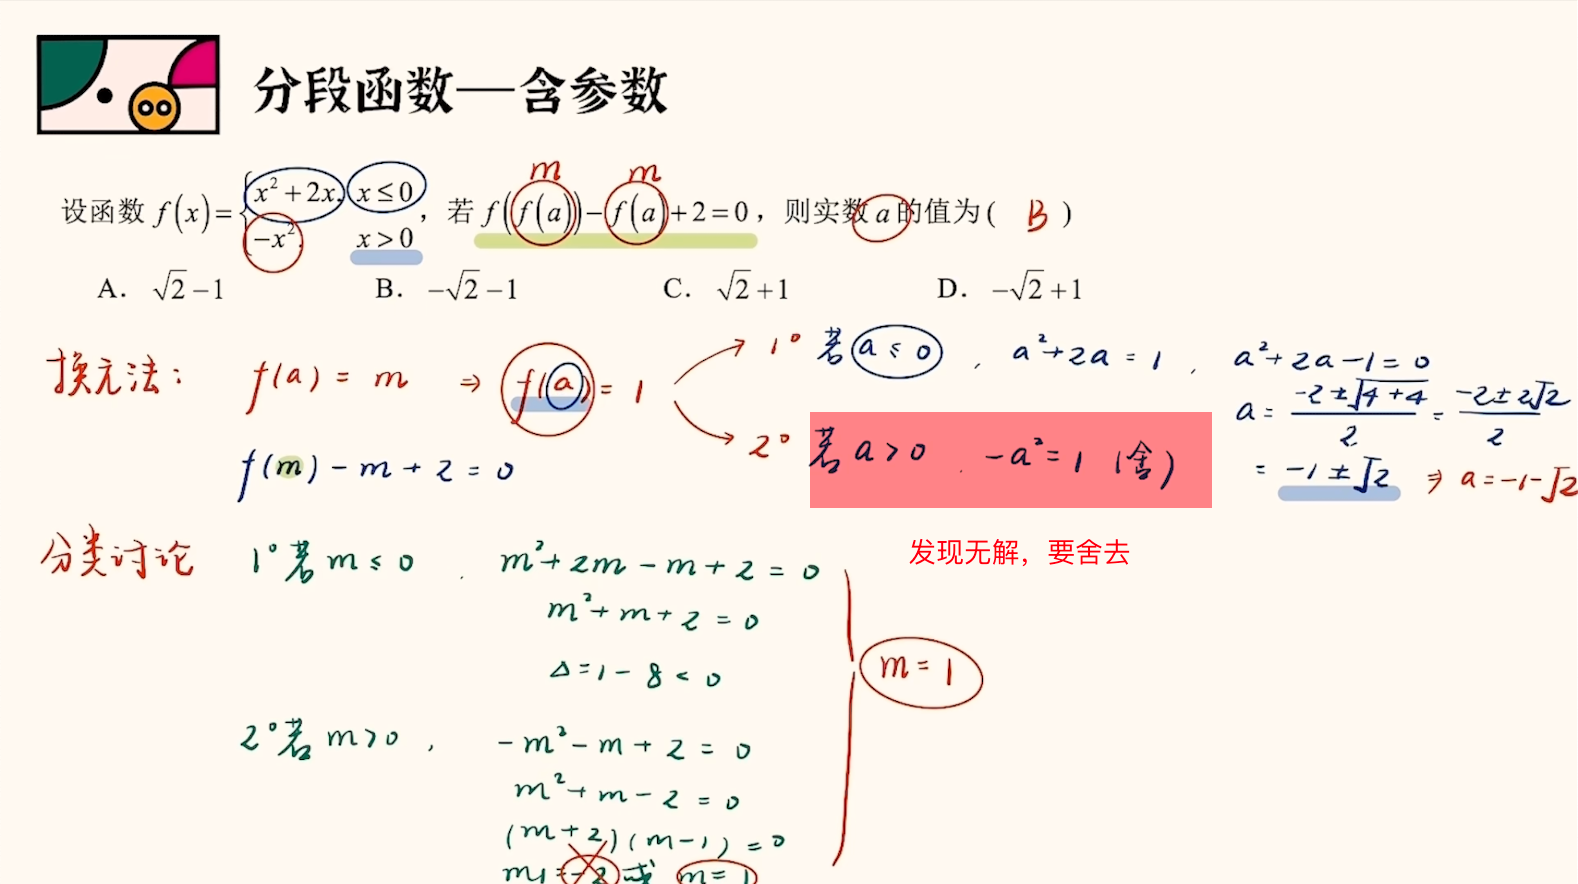 分段函数—含参数
m m
设函数 f(x)={x²+2x, x≤0; -x², x>0, 若 f(f(a))-f(a)+2=0, 则实数 a 的值为( B )
A. √2-1 B. -√2-1 C. √2+1 D. -√2+1
换元法: f(a) = m ⇒ f(a) = 1
f(m) - m + 2 = 0
1° 若 a ≤ 0 , a²+2a = 1 , a²+2a-1=0
a = (-2±√(4+4))/2 = (-2±2√2)/2
= -1±√2 ⇒ a=-1-√2
2° 若 a>0 . -a²=1 (舍)
发现无解，要舍去
分类讨论 1° 若 m ≤ 0 . m²+2m-m+2=0
m²+m+2=0
Δ=1-8<0
2° 若 m>0 , -m²-m+2=0
m²+m-2=0
(m+2)(m-1)=0
m1=-2 或 m=1
m=1